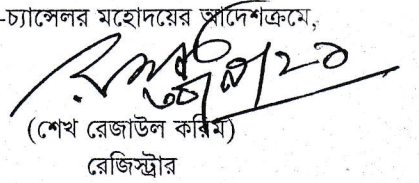 -চ্যান্সেলর মহোদয়ের আদেশক্রমে,
(শেখ রেজাউল করিম)
রেজিস্ট্রার